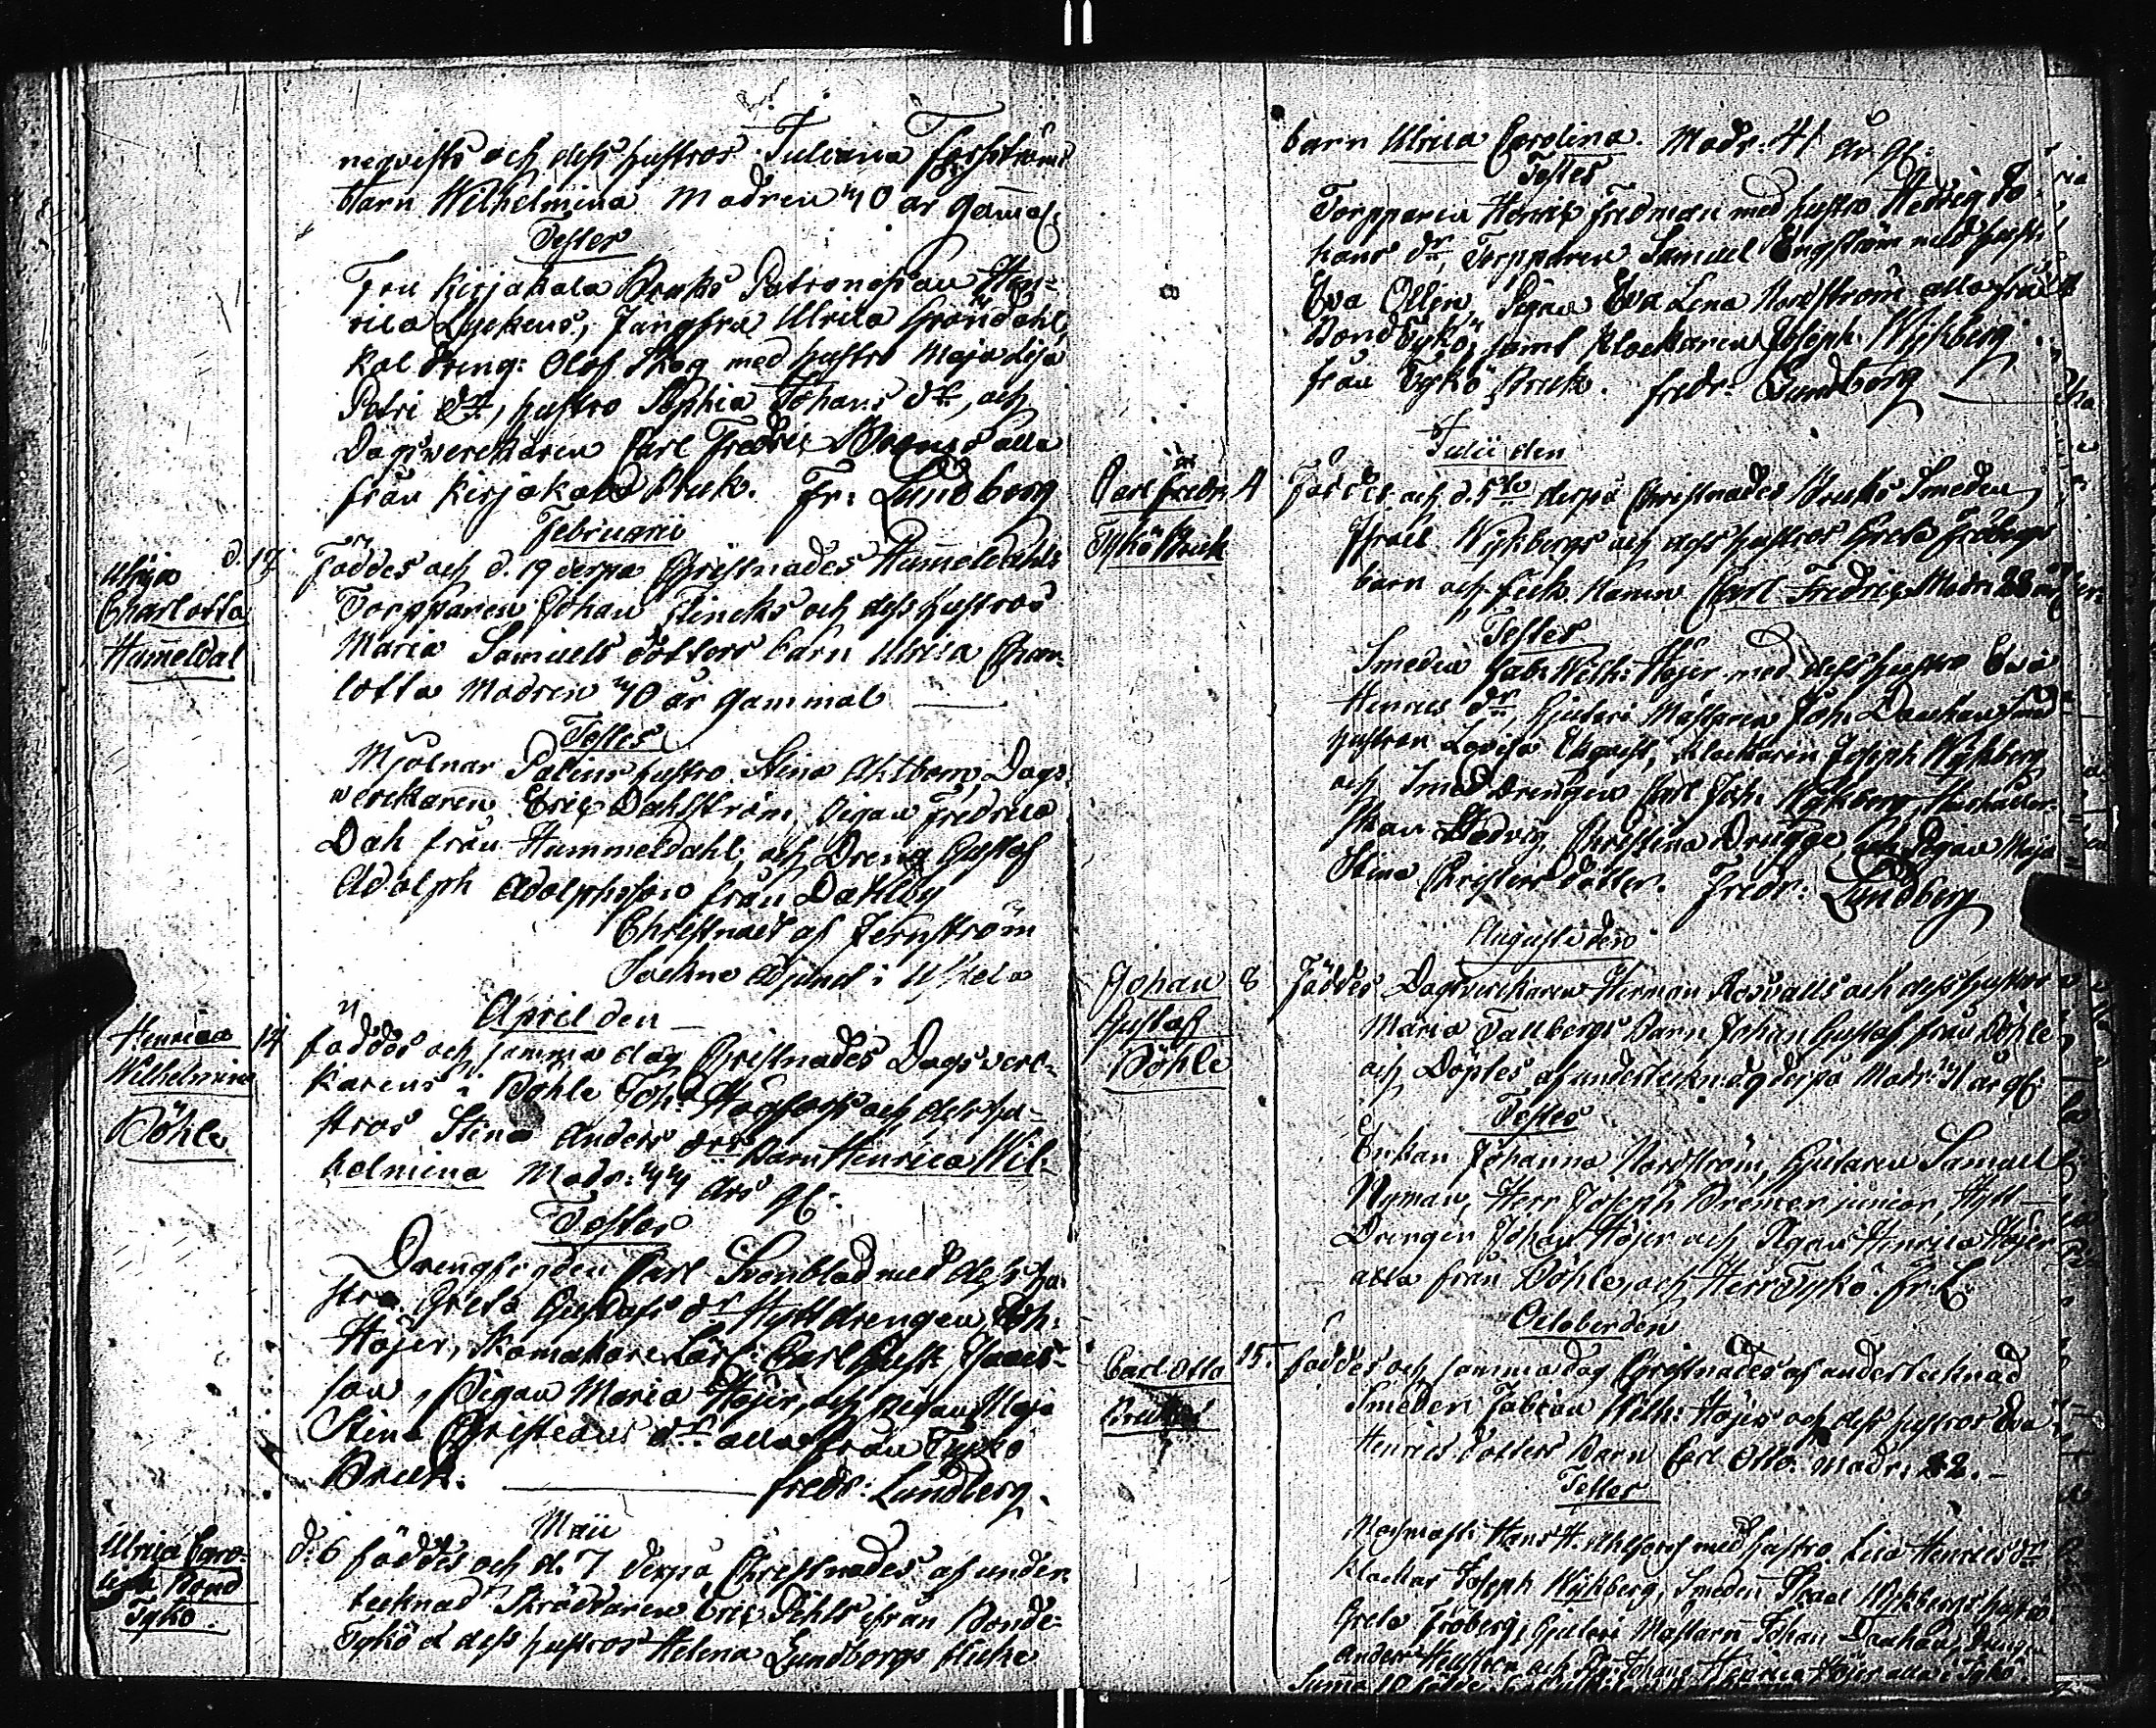 neqvists och dess hustros Juliana Forsströms
barn Wilhelmina Modren 40 år gamal:
Testes
Fru Kirjakala Bruks Patronessan Hen-
rica Lyckens, Jungfru Ulrica Gröndahl,
Kol Dreng: Olof Skog med hustro Maja Lisa
Petri dr, hustro Sophia Johans dr, och
Dagswerckaren Carl Fredric alla
från Kirjakala Bruk. Fr: Lundberg
Februarii
Ulrica
Charlotta
Hummeldal
d. 17 Föddes och d. 19 derpå Christnades Hummeldahls
Torpparen Johan Flincks och dess hustros
Maria Samuels dotters barn Ulrica Char-
lotta Modren 40 år gammal
Testes
Mjölnar Palins hustro Stina Ahlbom, Dags-
werckaren Eric Dahlström, Pigan Fredrica
Dah från Hummeldahl, och Dreng Gustaf
Adolph Adolphsson från Dahlby
Christnadt af Jernström
Sockne Adjunct i Uskela
April den
Henrica
Wilhelmina
Böhle
14 föddes och samma dag Christnades Dagswerc-
karens i Böhle Joh: Högfors och dess hu-
stros Stina Anders drs Barn Henrica Wil-
helmina Modr: 44 års gl:
Testes
Drengfogden Carl Svonblad med dess hu-
stro Greta Gustafs dr Hyttdrengen Joh:
Höjer, Skomakare Lärl: Carl Gust: Isaacs-
son, Pigan Maria Höjer, och Pigan Maja
Stina Christians dr alla från Tykö
Bruk. Fredr: Lundberg.
Maii
Ulrica Caro-
lina Bond
Tykö.
d: 6 föddes och d. 7 derpå Christnades af under-
tecknad Skräddaren Eric Pihls från Bonde-
Tykö & dess hustros Helena Lundborgs flicke
barn Ulrica Carolina. Modr: 41 år gl:
Testes
Torpparen Henric Fredman med hustro Hedvig Jo-
hans dr, Torpparen Samuel Engström med hustr:
Eva Ollin, Pigan Eva Lena Nordström alla från
Bond Tykö, samt Klockaren Joseph Wijkberg
från Tykö Bruk. Fredr: Lundberg
Julii den
Carl Fredr:
Tykö Bruk
4 Föddes och d. 5te derpå Christnades Bruks Smeden
Israel Wijkbergs och dess hustros Greta Fröbergs
barn och fick Namn Carl Fredric, Modr: 22 år
Testes
Smeden Fab: Wilh: Höjer med dess hustro Eva
Henrics dr, Gjuteri Mästaren Joh: Smed
hustron Lovisa Ekqvist, Klockaren Joseph Wijkberg
och Smeddrengen Carl Joh: Wijkberg, Hushåller-
skan Hedvig Christina Brügge, och Pigan Maja
Stina Christiers dotter. Fredr: Lundberg
Augusti den
Johan
Gustaf
Böhle
8 Föddes Dagsverckaren Herman Rosvalls och dess hustros
Maria Tallbergs Barn Johan Gustaf från Böhle
och Döptes af undertecknad d. 9 derpå Modr: 41 år gl:
Testes
Enkan Johanna Nordström, Gjutaren Samuel
Nyman, Herr Joseph Bremer junior, Hytt-
Drengen Johan Höjer och Pigan Henrica Höjer
alla från Böhle, och Herr Tykö. Fr: L:
October den
Carl Otto
15. föddes och samma dag Christnades af undertecknad
Smeden Fabian Wilh: Höjers och dess hustros Eva
Henrics dotters Barn Carl Otto. Modr: 22.-
Testes
Masmäst: Hans H. Ahlfors med hustro Lisa Henrics dr
Klockar Joseph Wijkberg, Smeden Israel Wijkbergs hustro
Greta Fröberg, Gjuteri Mästarn Johan Drengen
Anders och Johans Henrica Höjer alla i Tykö